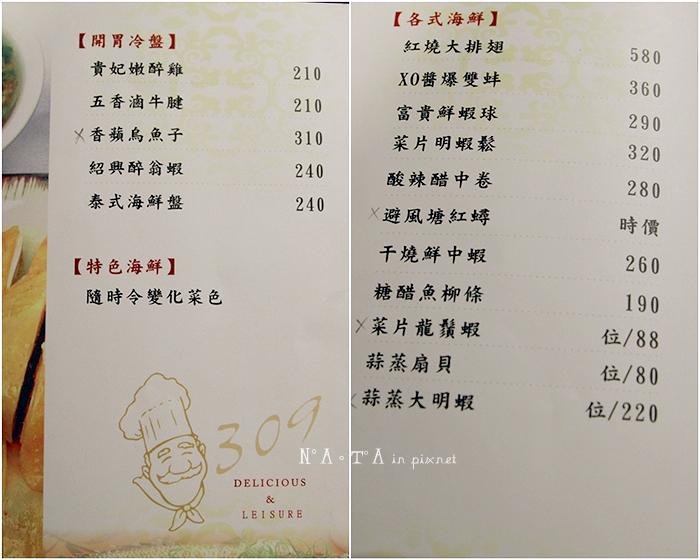 【開胃冷盤】
貴妃嫩醉雞 210
五香滷牛腱 210
香蘋烏魚子 310
紹興醉翁蝦 240
泰式海鮮盤 240
【特色海鮮】
隨時令變化菜色
309
DELICIOUS
&
LEISURE
【各式海鮮】
紅燒大排翅 580
XO醬爆雙蚌 360
富貴鮮蝦球 290
菜片明蝦鬆 320
酸辣醋中卷 280
避風塘紅蟳 時價
干燒鮮中蝦 260
糖醋魚柳條 190
菜片龍鬚蝦 位/88
蒜蒸扇貝 位/80
蒜蒸大明蝦 位/220
N°A°T°A in pixnet